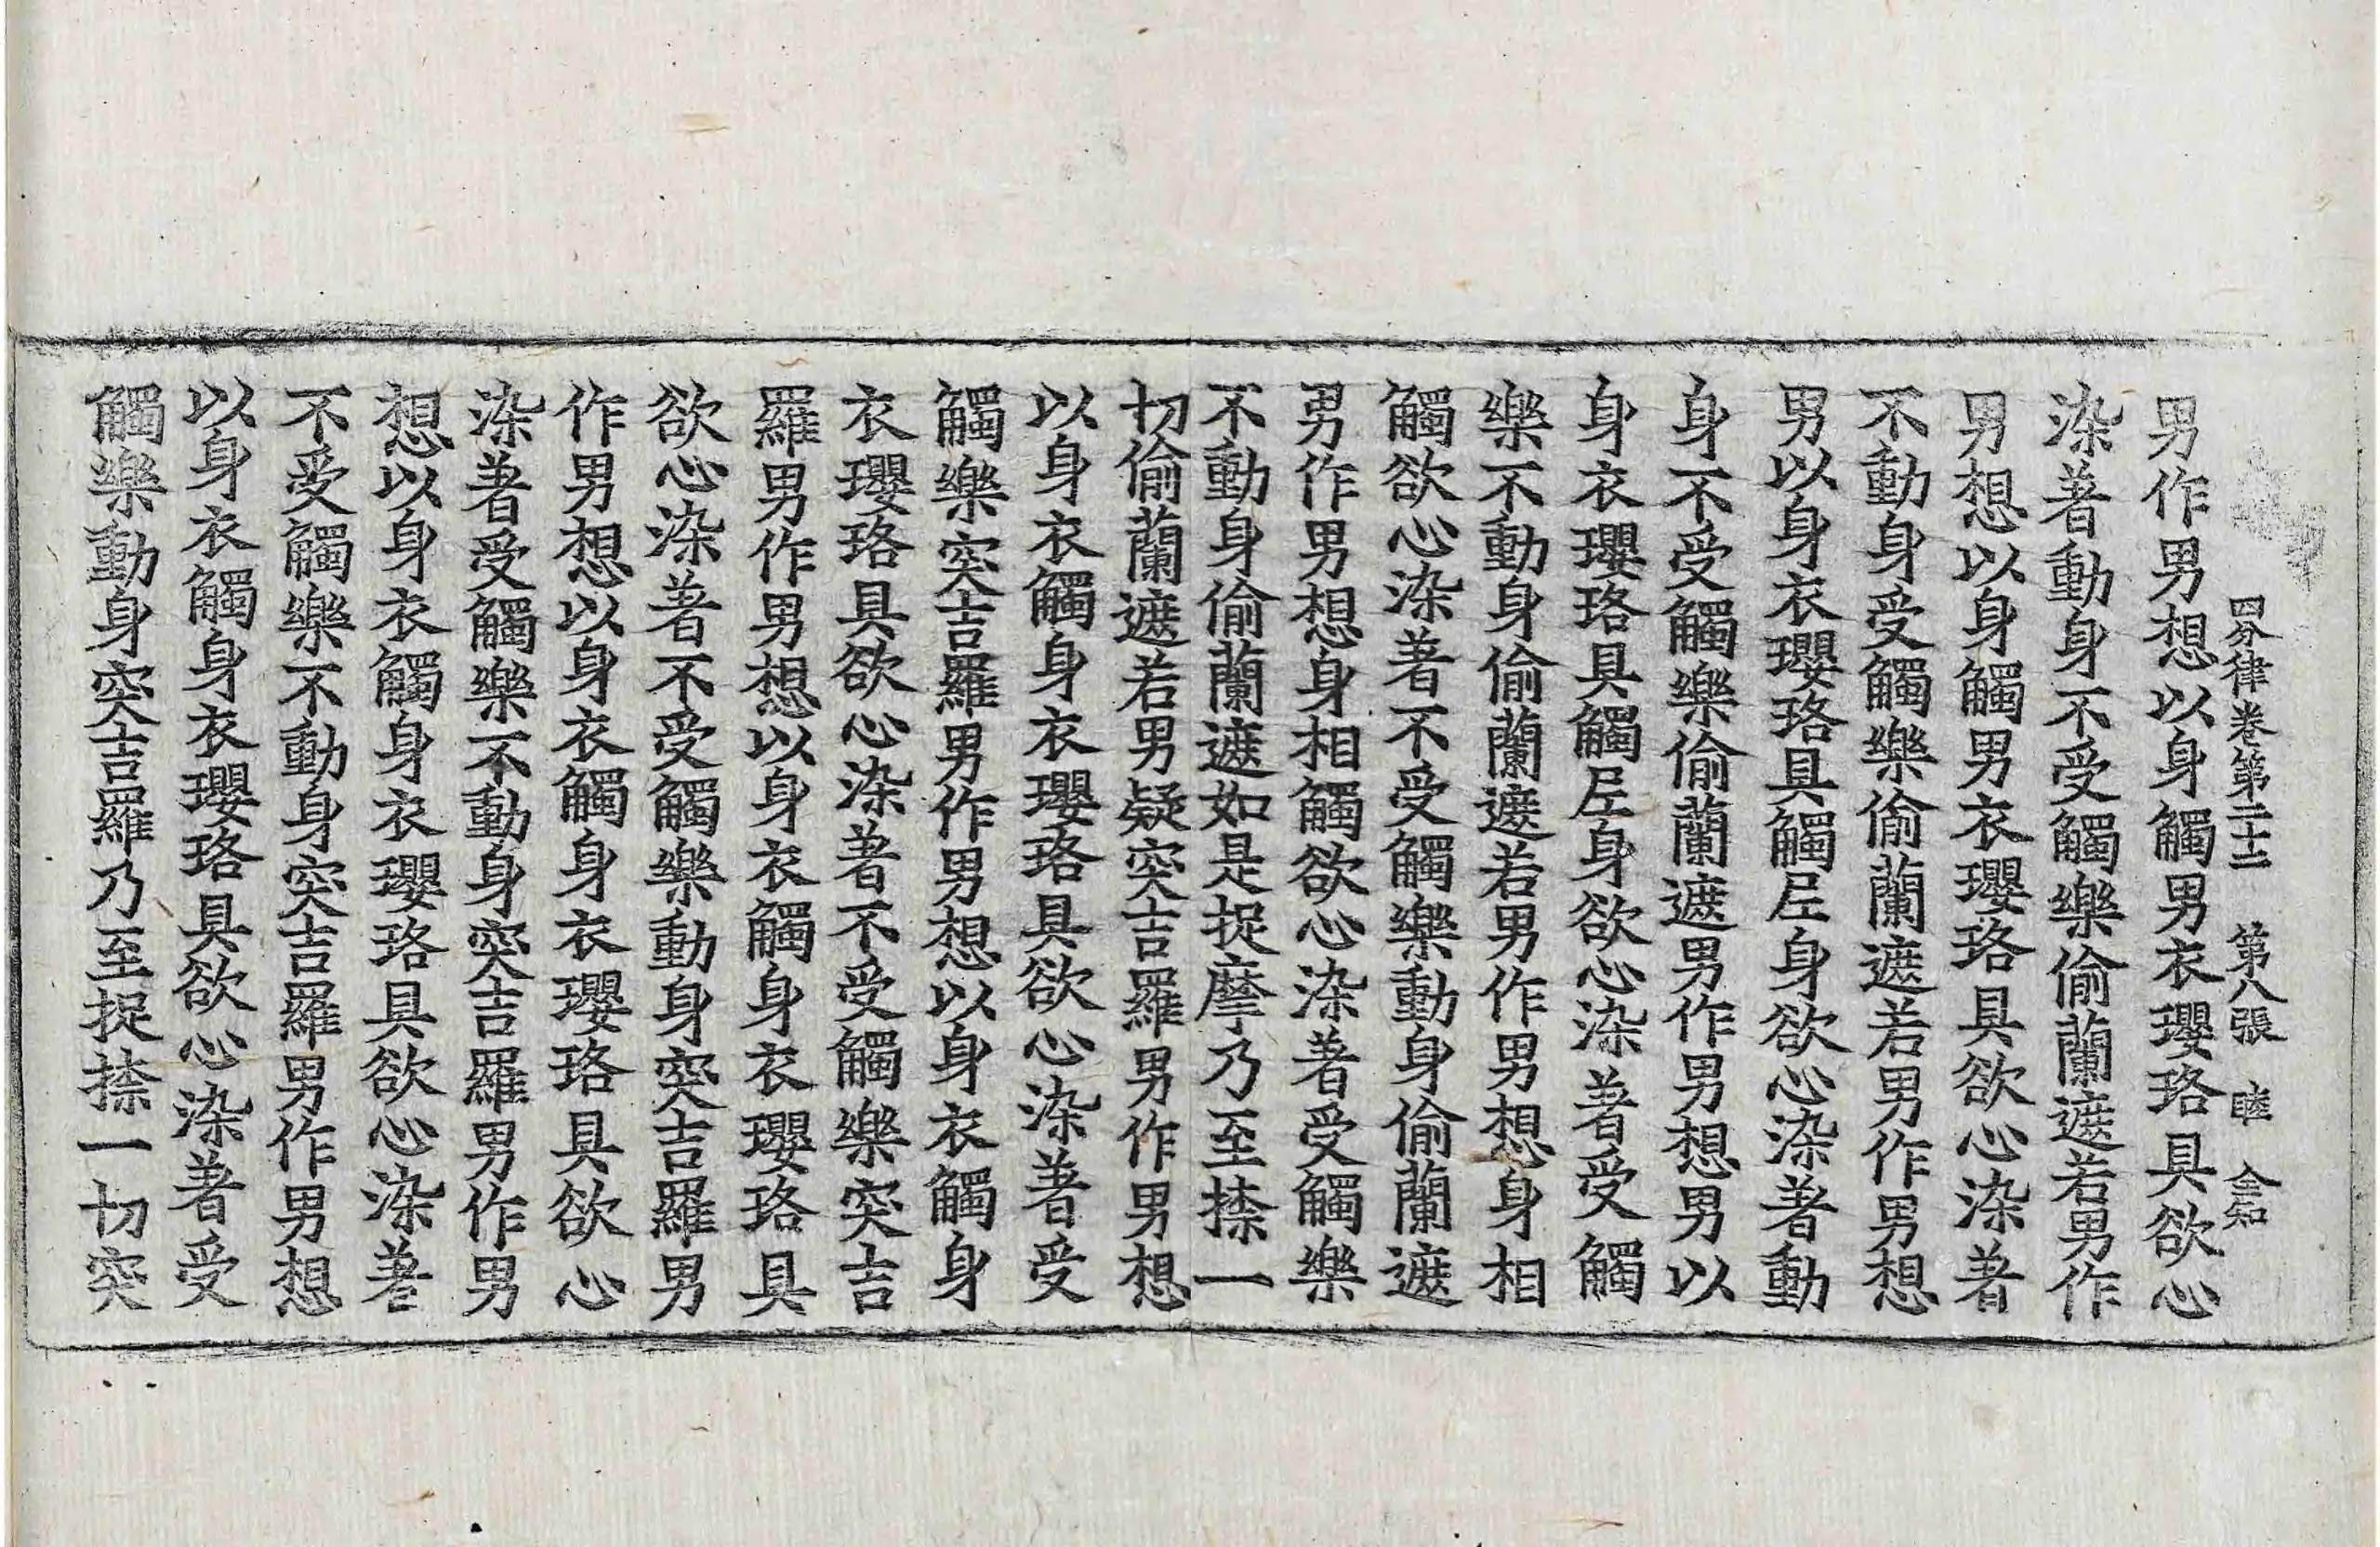 四分律卷第二十二 第八張 睦
男作男想以身觸男衣瓔珞具欲心
染著動身不受觸樂偷蘭遮若男作
男想以身觸男衣瓔珞具欲心染著
不動身受觸樂偷蘭遮若男作男想
男以身衣瓔珞具觸𡰱身欲心染著動
身不受觸樂偷蘭遮男作男想男以
身衣瓔珞具觸𡰱身欲心染著受觸
樂不動身偷蘭遮若男作男想身相
觸欲心染著不受觸樂動身偷蘭遮
男作男想身相觸欲心染著受觸樂
不動身偷蘭遮如是捉摩乃至捺一
切偷蘭遮若男疑突吉羅男作男想
以身衣觸身衣瓔珞具欲心染著受
觸樂突吉羅男作男想以身衣觸身
衣瓔珞具欲心染著不受觸樂突吉
羅男作男想以身衣觸身衣瓔珞具
欲心染著不受觸樂動身突吉羅男
作男想以身衣觸身衣瓔珞具欲心
染著受觸樂不動身突吉羅男作男
想以身衣觸身衣瓔珞具欲心染著
不受觸樂不動身突吉羅男作男想
以身衣觸身衣瓔珞具欲心染著受
觸樂動身突吉羅乃至捉捺一切突